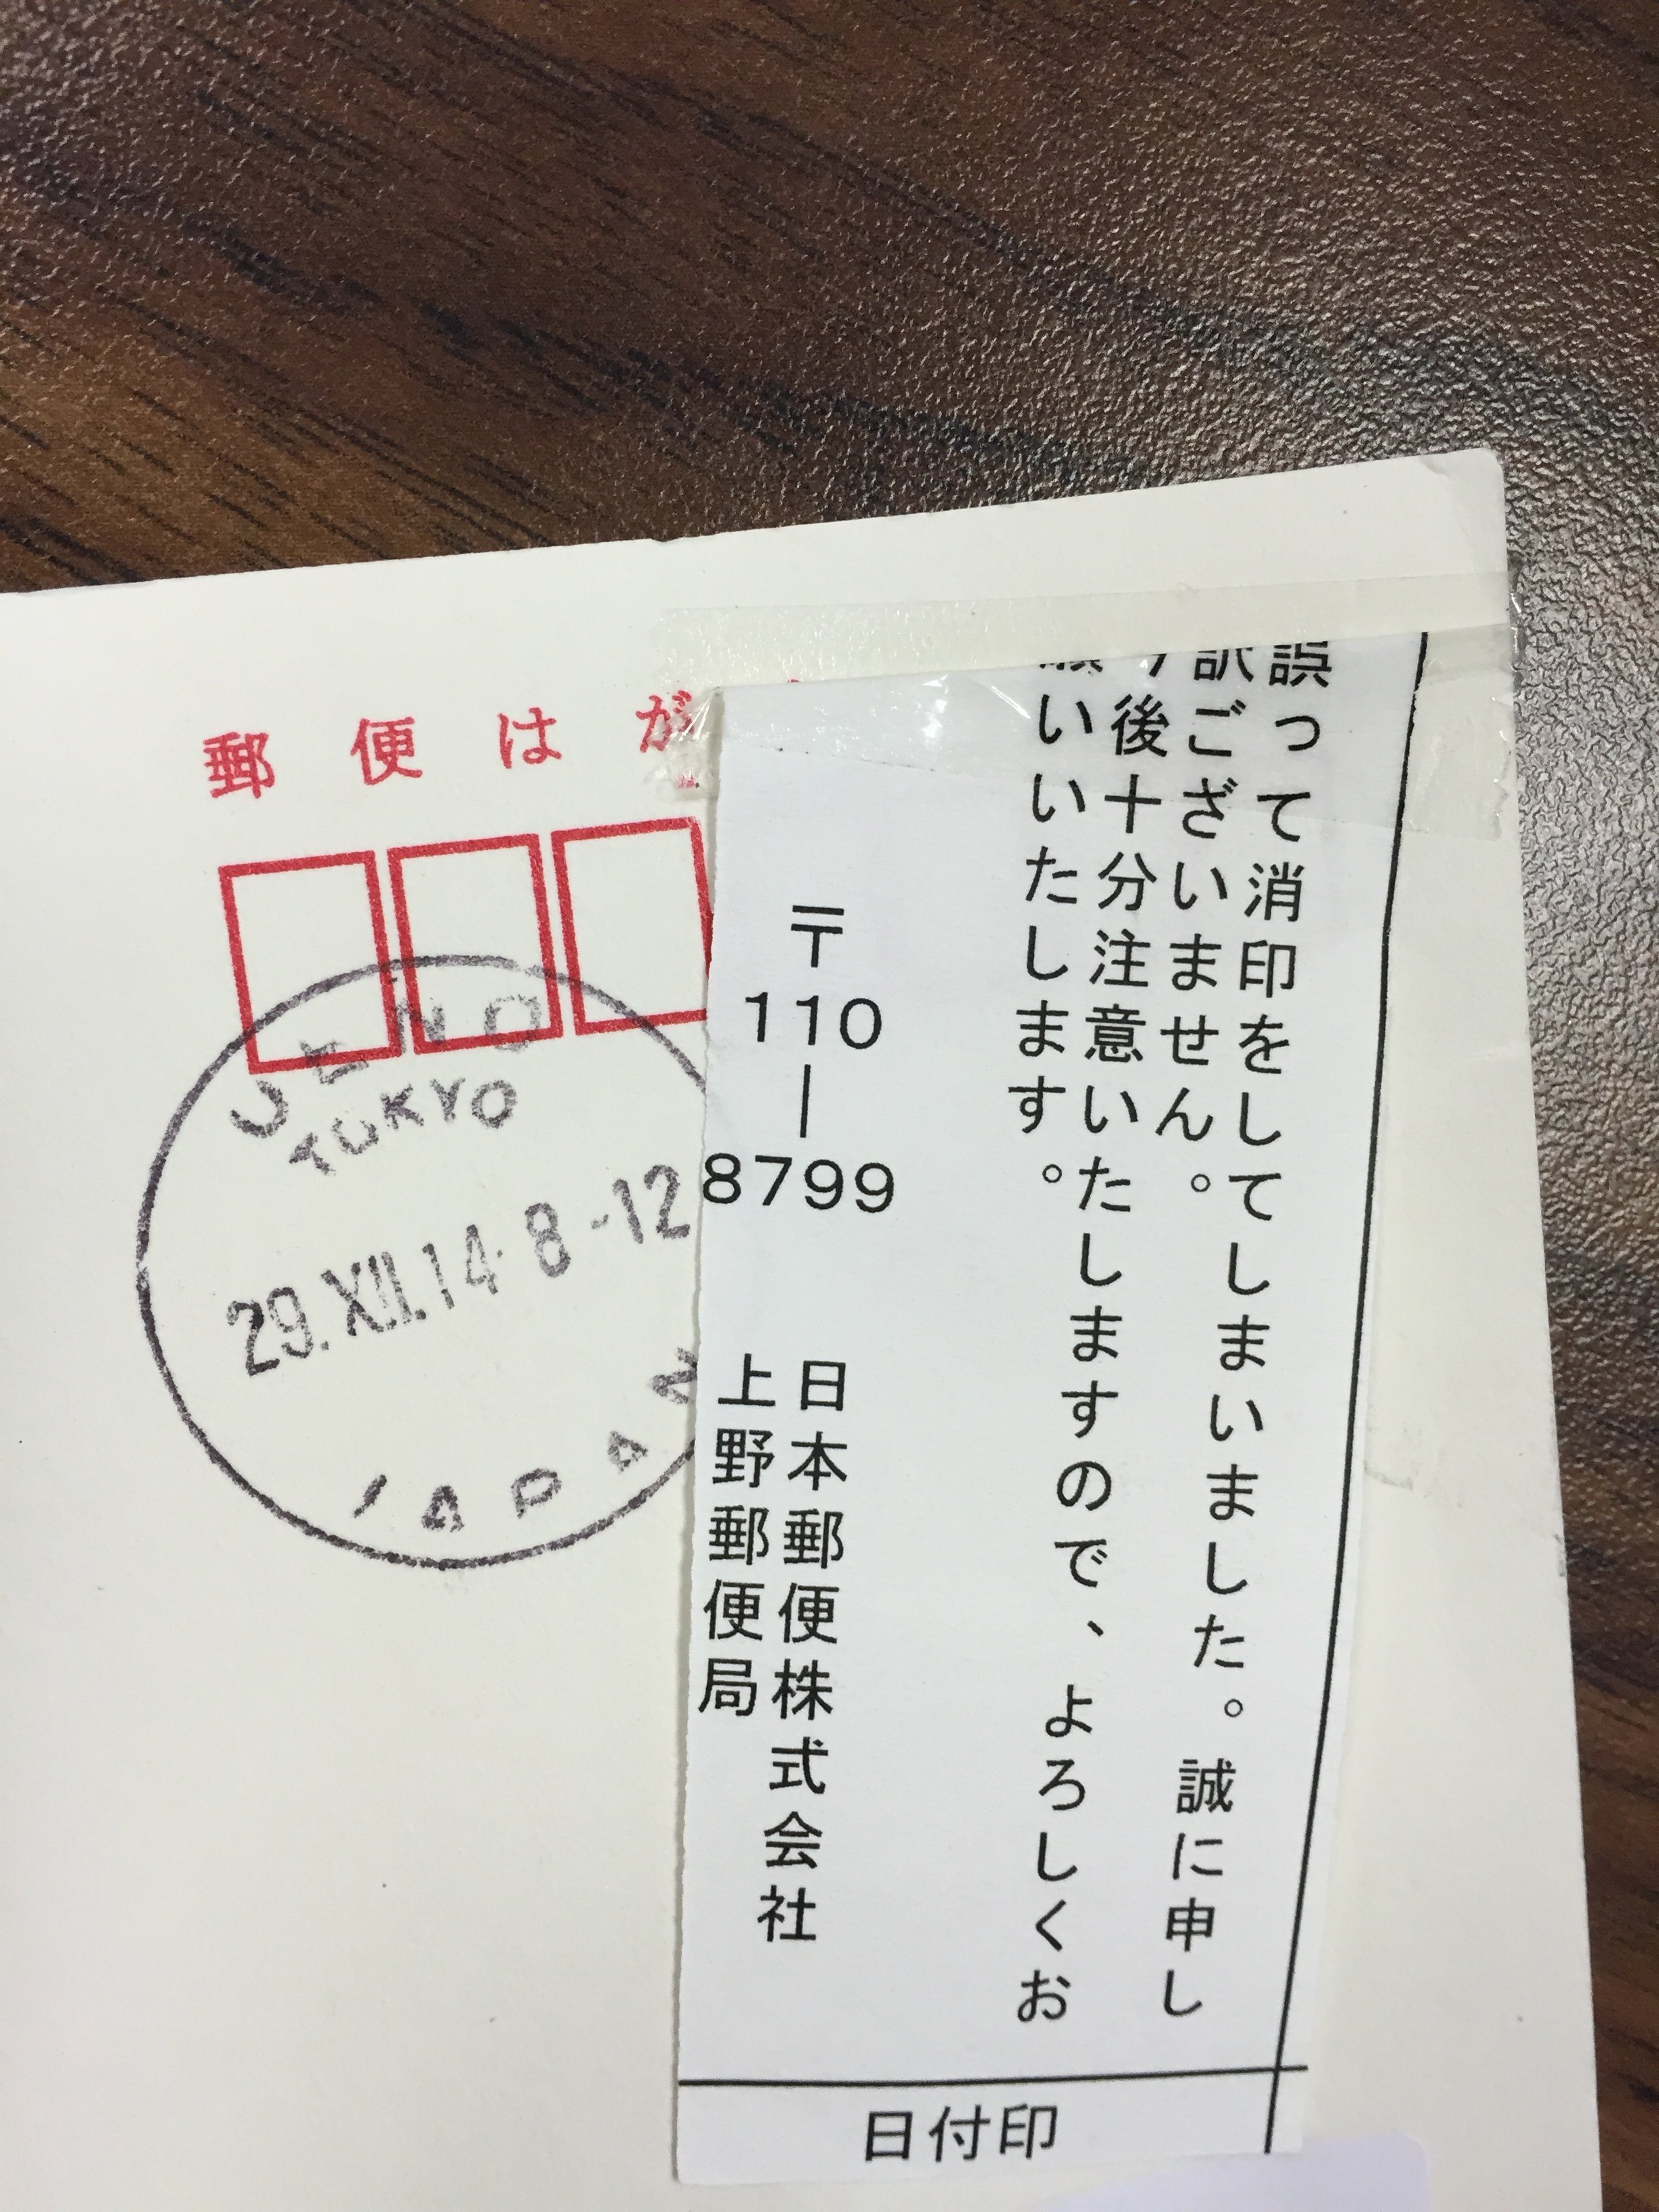 郵便はが
UENO
TOKYO
29.XII.14 8-12
JAPAN
誤って消印をしてしまいました。誠に申し
訳ございません。
今後十分注意いたしますので、よろしくお
願いいたします。
〒110-8799
日本郵便株式会社
上野郵便局
日付印